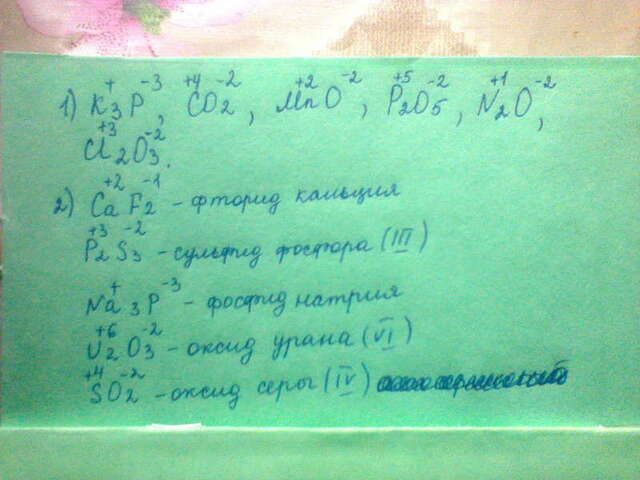 1) K₃⁺P⁻³, C⁺⁴O₂⁻², Mn⁺²O⁻², P₂⁺⁵O₅⁻², N₂⁺¹O⁻²,
Cl₂⁺³O₃⁻².
2) Ca⁺²F₂⁻¹ - фторид кальция
P₂⁺³S₃⁻² - сульфид фосфора (III)
Na₃⁺P⁻³ - фосфид натрия
U₂⁺⁶O₃⁻² - оксид урана (VI)
S⁺⁴O₂⁻² - оксид серы (IV)